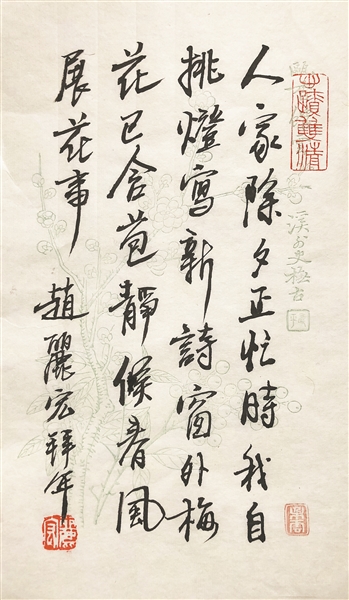 人家除夕正忙時我自
挑燈寫新詩窗外梅
花已含苞靜候春風
展花事
趙麗宏拜年
心蹟雙清